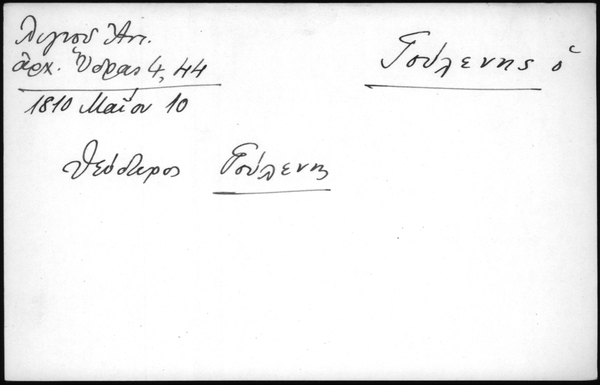 Λιγνού Ἀντ.
ἀρχ. Ὕδρας 4, 44
1810 Μαΐου 10
Γούλενης ὁ
Θεόδωρος Γούλενης